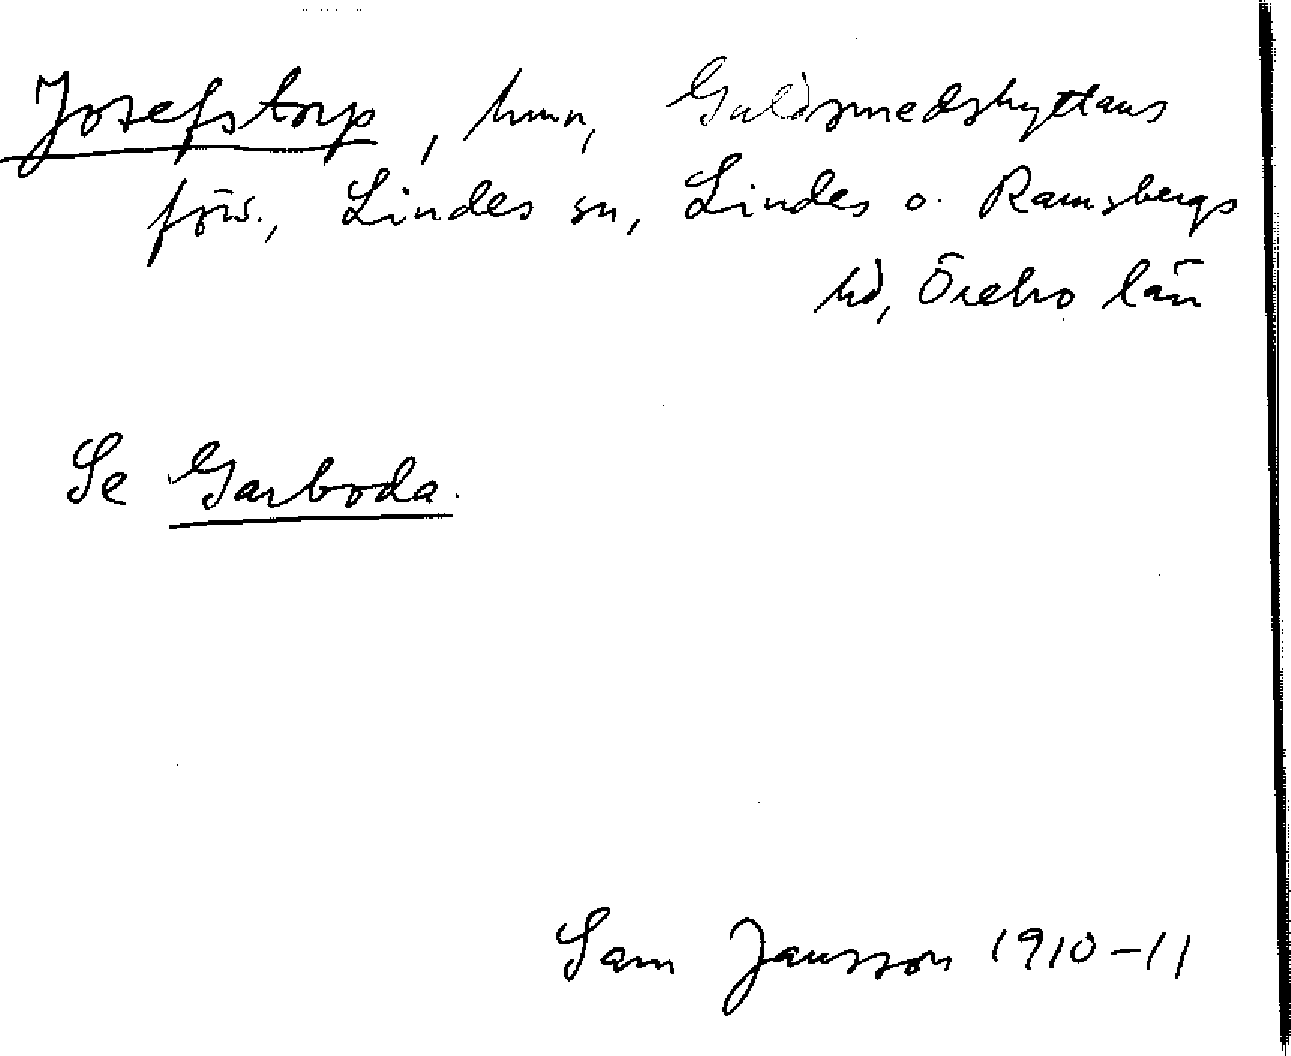 Josefstorp, hmn, Guldsmedshyttans
förs., Lindes sn, Lindes o. Ramsbergs
hd, Örebro län
Se Garboda.
Sam Jansson 1910-11